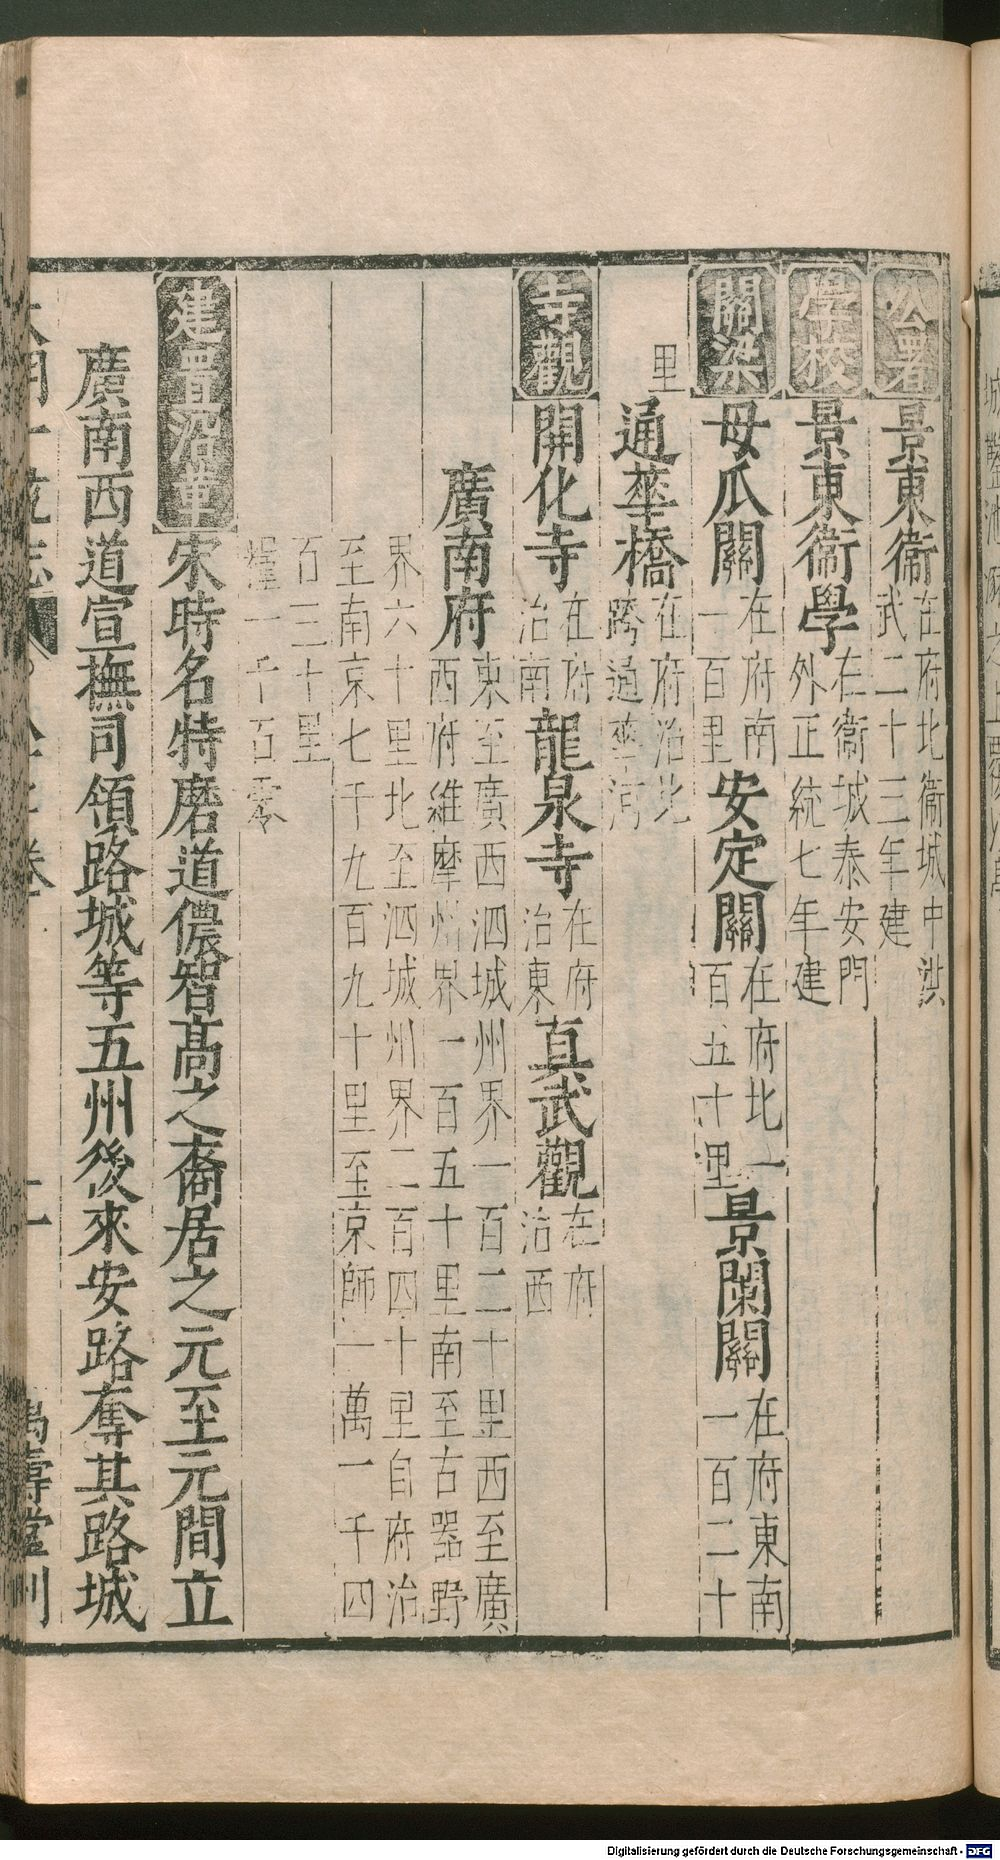 公署 景東衞 在府北衞城中洪武二十三年建
學校 景東衞學 在衞城泰安門外正統七年建
關梁 母瓜關 在府南一百里 安定關 在府北一百五十里 景闌關 在府東南一百二十
里 通華橋 在府治北跨通華河
寺觀 開化寺 在府治南 龍泉寺 在府治東 真武觀 在府治西
廣南府 東至廣西泗城州界一百二十里西至廣西府維摩州界一百五十里南至古器野
界六十里北至泗城州界二百四十里自府治至南京七千九百九十里至京師一萬一千四
百三十里
建置沿革 宋時名特磨道儂智髙之裔居之元至元間立
廣南西道宣撫司領路城等五州後來安路奪其路城
萬壽堂刊
Digitalisierung gefördert durch die Deutsche Forschungsgemeinschaft - DFG